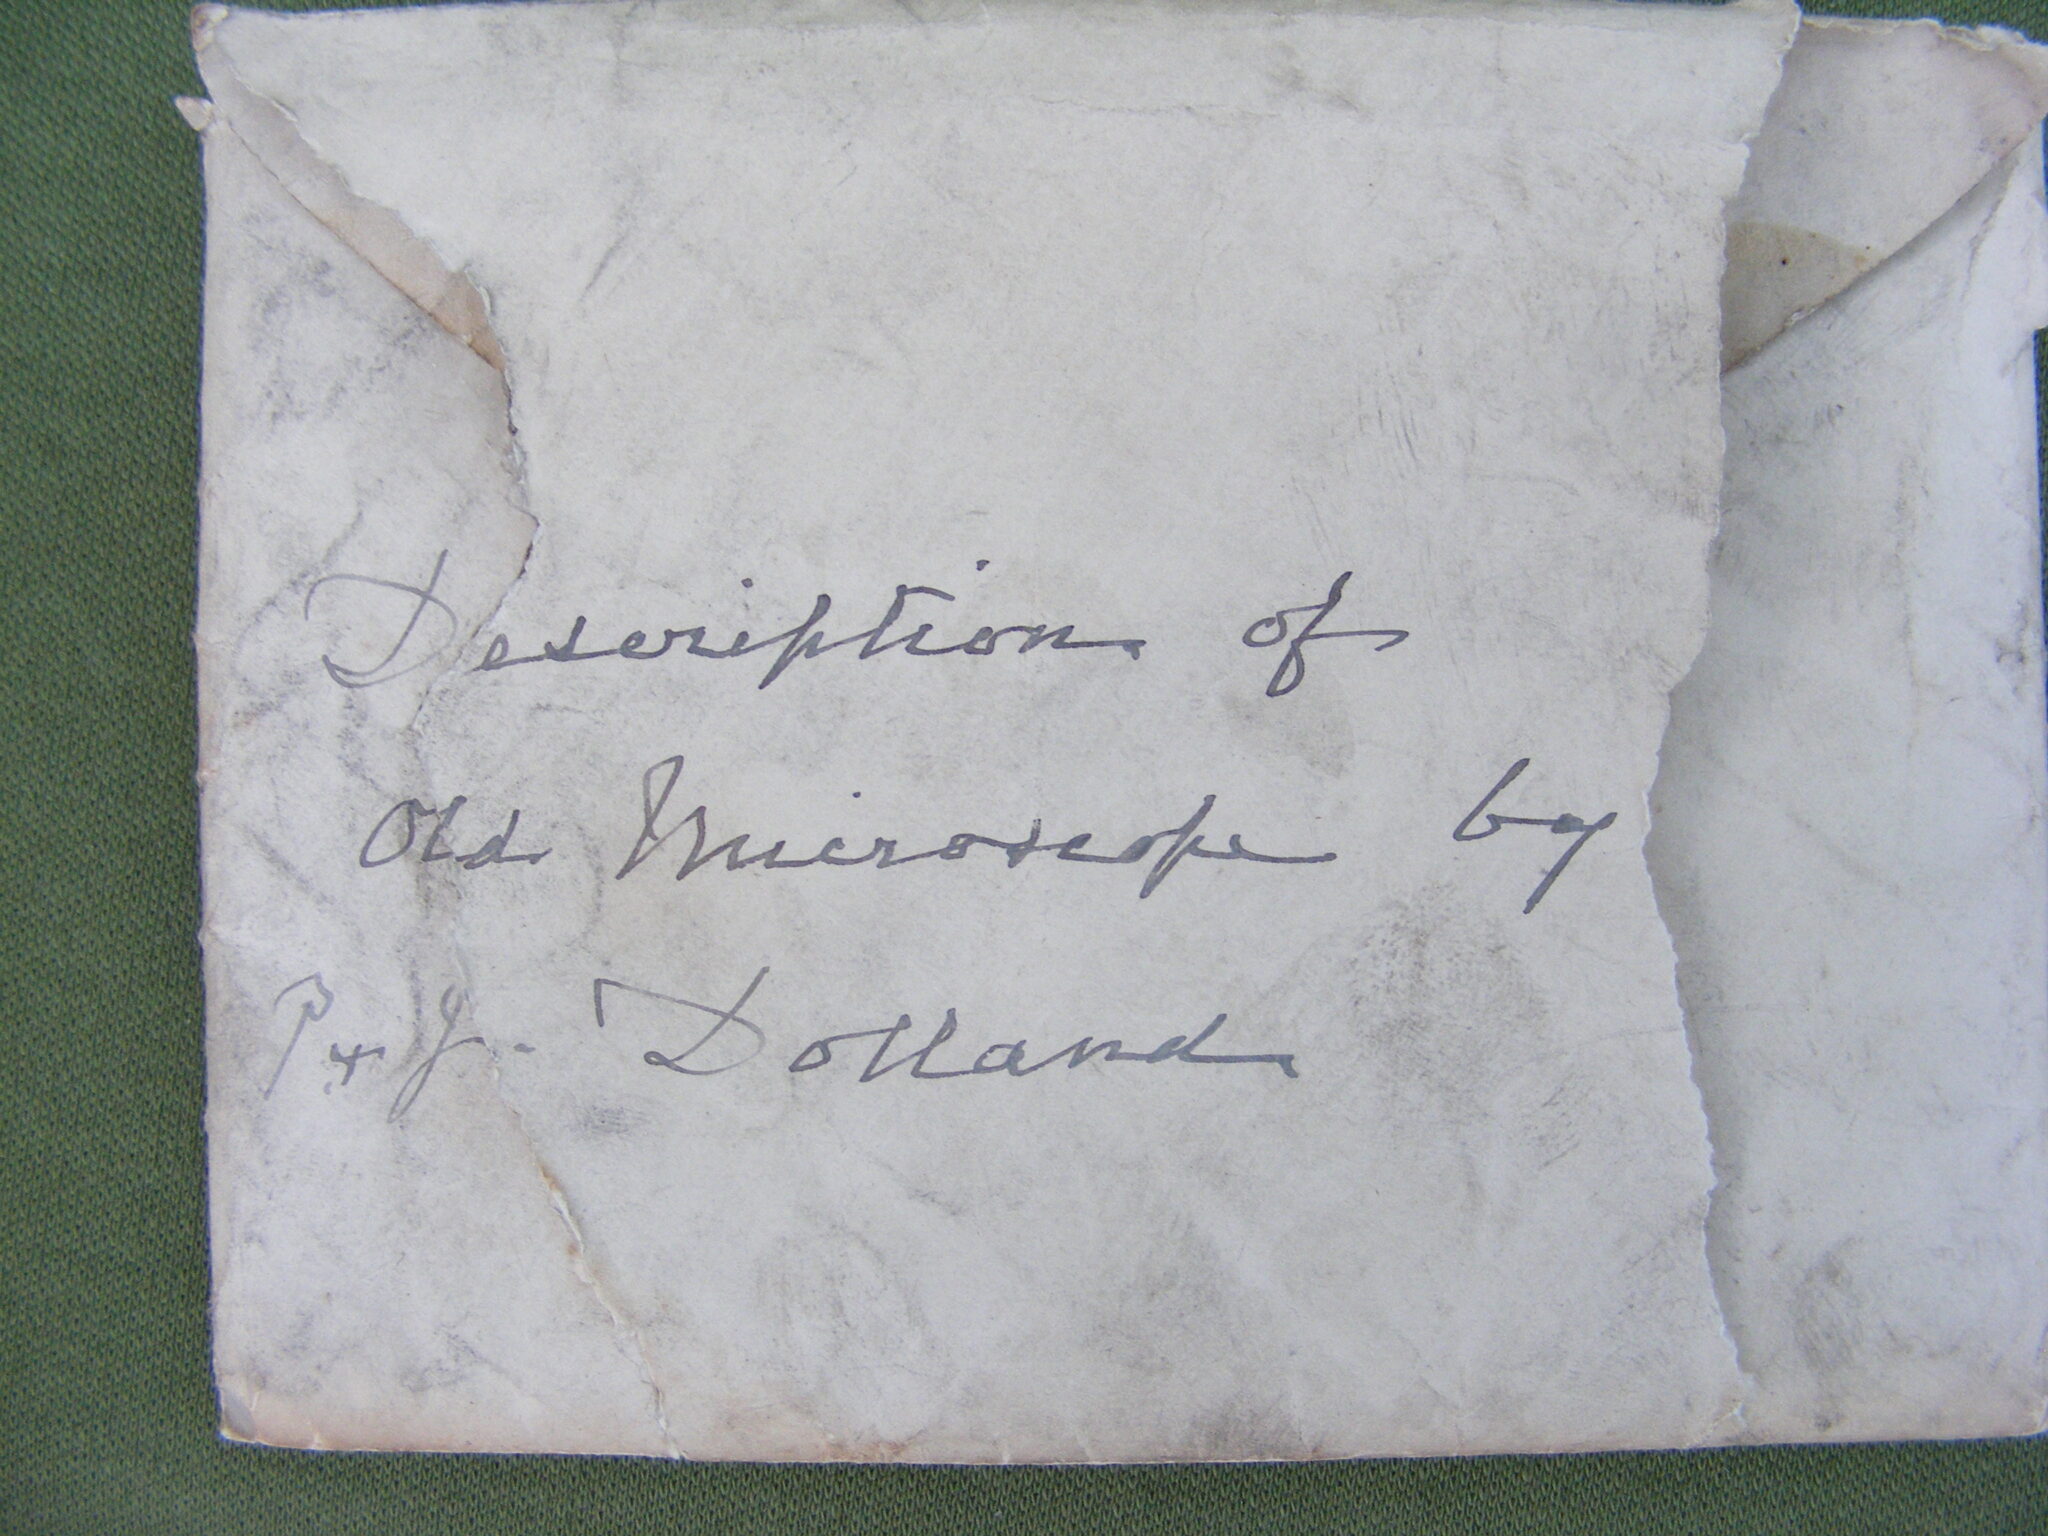 Description of
Old Microscope by
P & J. Dolland